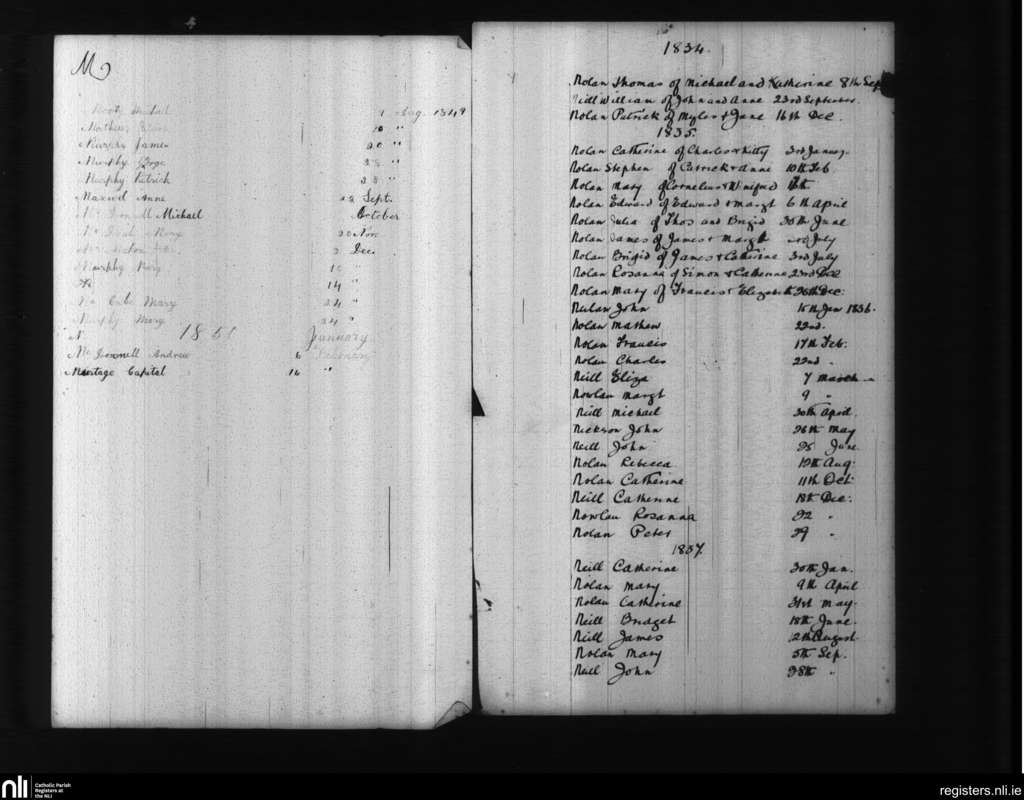 M
Aug. 1849
Mathews
20 "
Murphy James 20 "
Murphy George 28 "
Murphy Patrick 28 "
Maxwell Anne 22 Sept.
Michael October
Mary 20 Nov.
2 Dec.
Murphy Mary 10 "
14 "
Mc Cabe Mary 24 "
Murphy Mary 24 "
January
Mc Donnell Andrew 6
Capital 16 "
1834.
Nolan Thomas of Michael and Katherine 8th Sep
Neill William of John and Anne 23rd September.
Nolan Patrick of Myles & Jane 16th Dec.
1835.
Nolan Catherine of Charles & Kitty 3rd January.
Nolan Stephen of Patrick & Anne 10th Feb
Nolan Mary of Cornelius & Winifred
Nolan Edward of Edward & Margt 6th April
Nolan Julia of Thos and Brigid 30th June
Nolan James of James & Margt July
Nolan Brigid of James & Catherine 3rd July
Nolan Rosanna of Simon & Catherine 23rd Dec
Nolan Mary of Francis & Elizabeth 26th Dec:
Nolan John 15th Jan 1836.
Nolan Mathew 22nd.
Nolan Francis 17th Feb:
Nolan Charles 22nd "
Neill Eliza 7 March
Nowlan Margt 9 "
Neill Michael 30th April.
Nickson John 26th May
Neill John 25 June.
Nolan Rebecca 19th Aug:
Nolan Catherine 11th Oct
Neill Catherine 18th Dec:
Nowlan Rosanna 22 "
Nolan Peter 29 "
1837.
Neill Catherine 30th Jan.
Nolan Mary 9th April
Nolan Catherine 31st May.
Neill Bridget 18th June.
Neill James 2th August.
Nolan Mary 5th Sep.
Neill John 28th "
nli Catholic Parish Registers at the NLI
registers.nli.ie